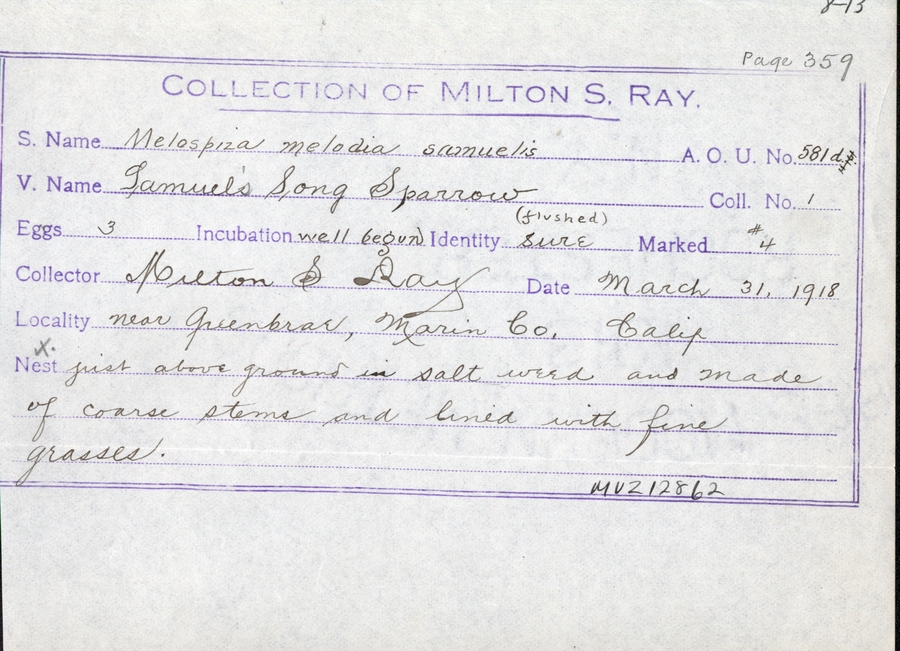 8-13
Page 359
COLLECTION OF MILTON S. RAY.
S. Name Melospiza melodia samuelis A. O. U. No. 581d
V. Name Samuel's Song Sparrow Coll. No. 1
(flushed)
Eggs 3 Incubation well begun Identity sure Marked #4
Collector Milton S Ray Date March 31, 1918
Locality near Greenbrae, Marin Co, Calif
x.
Nest just above ground in salt weed and made
of coarse stems and lined with fine
grasses.
MVZ12862